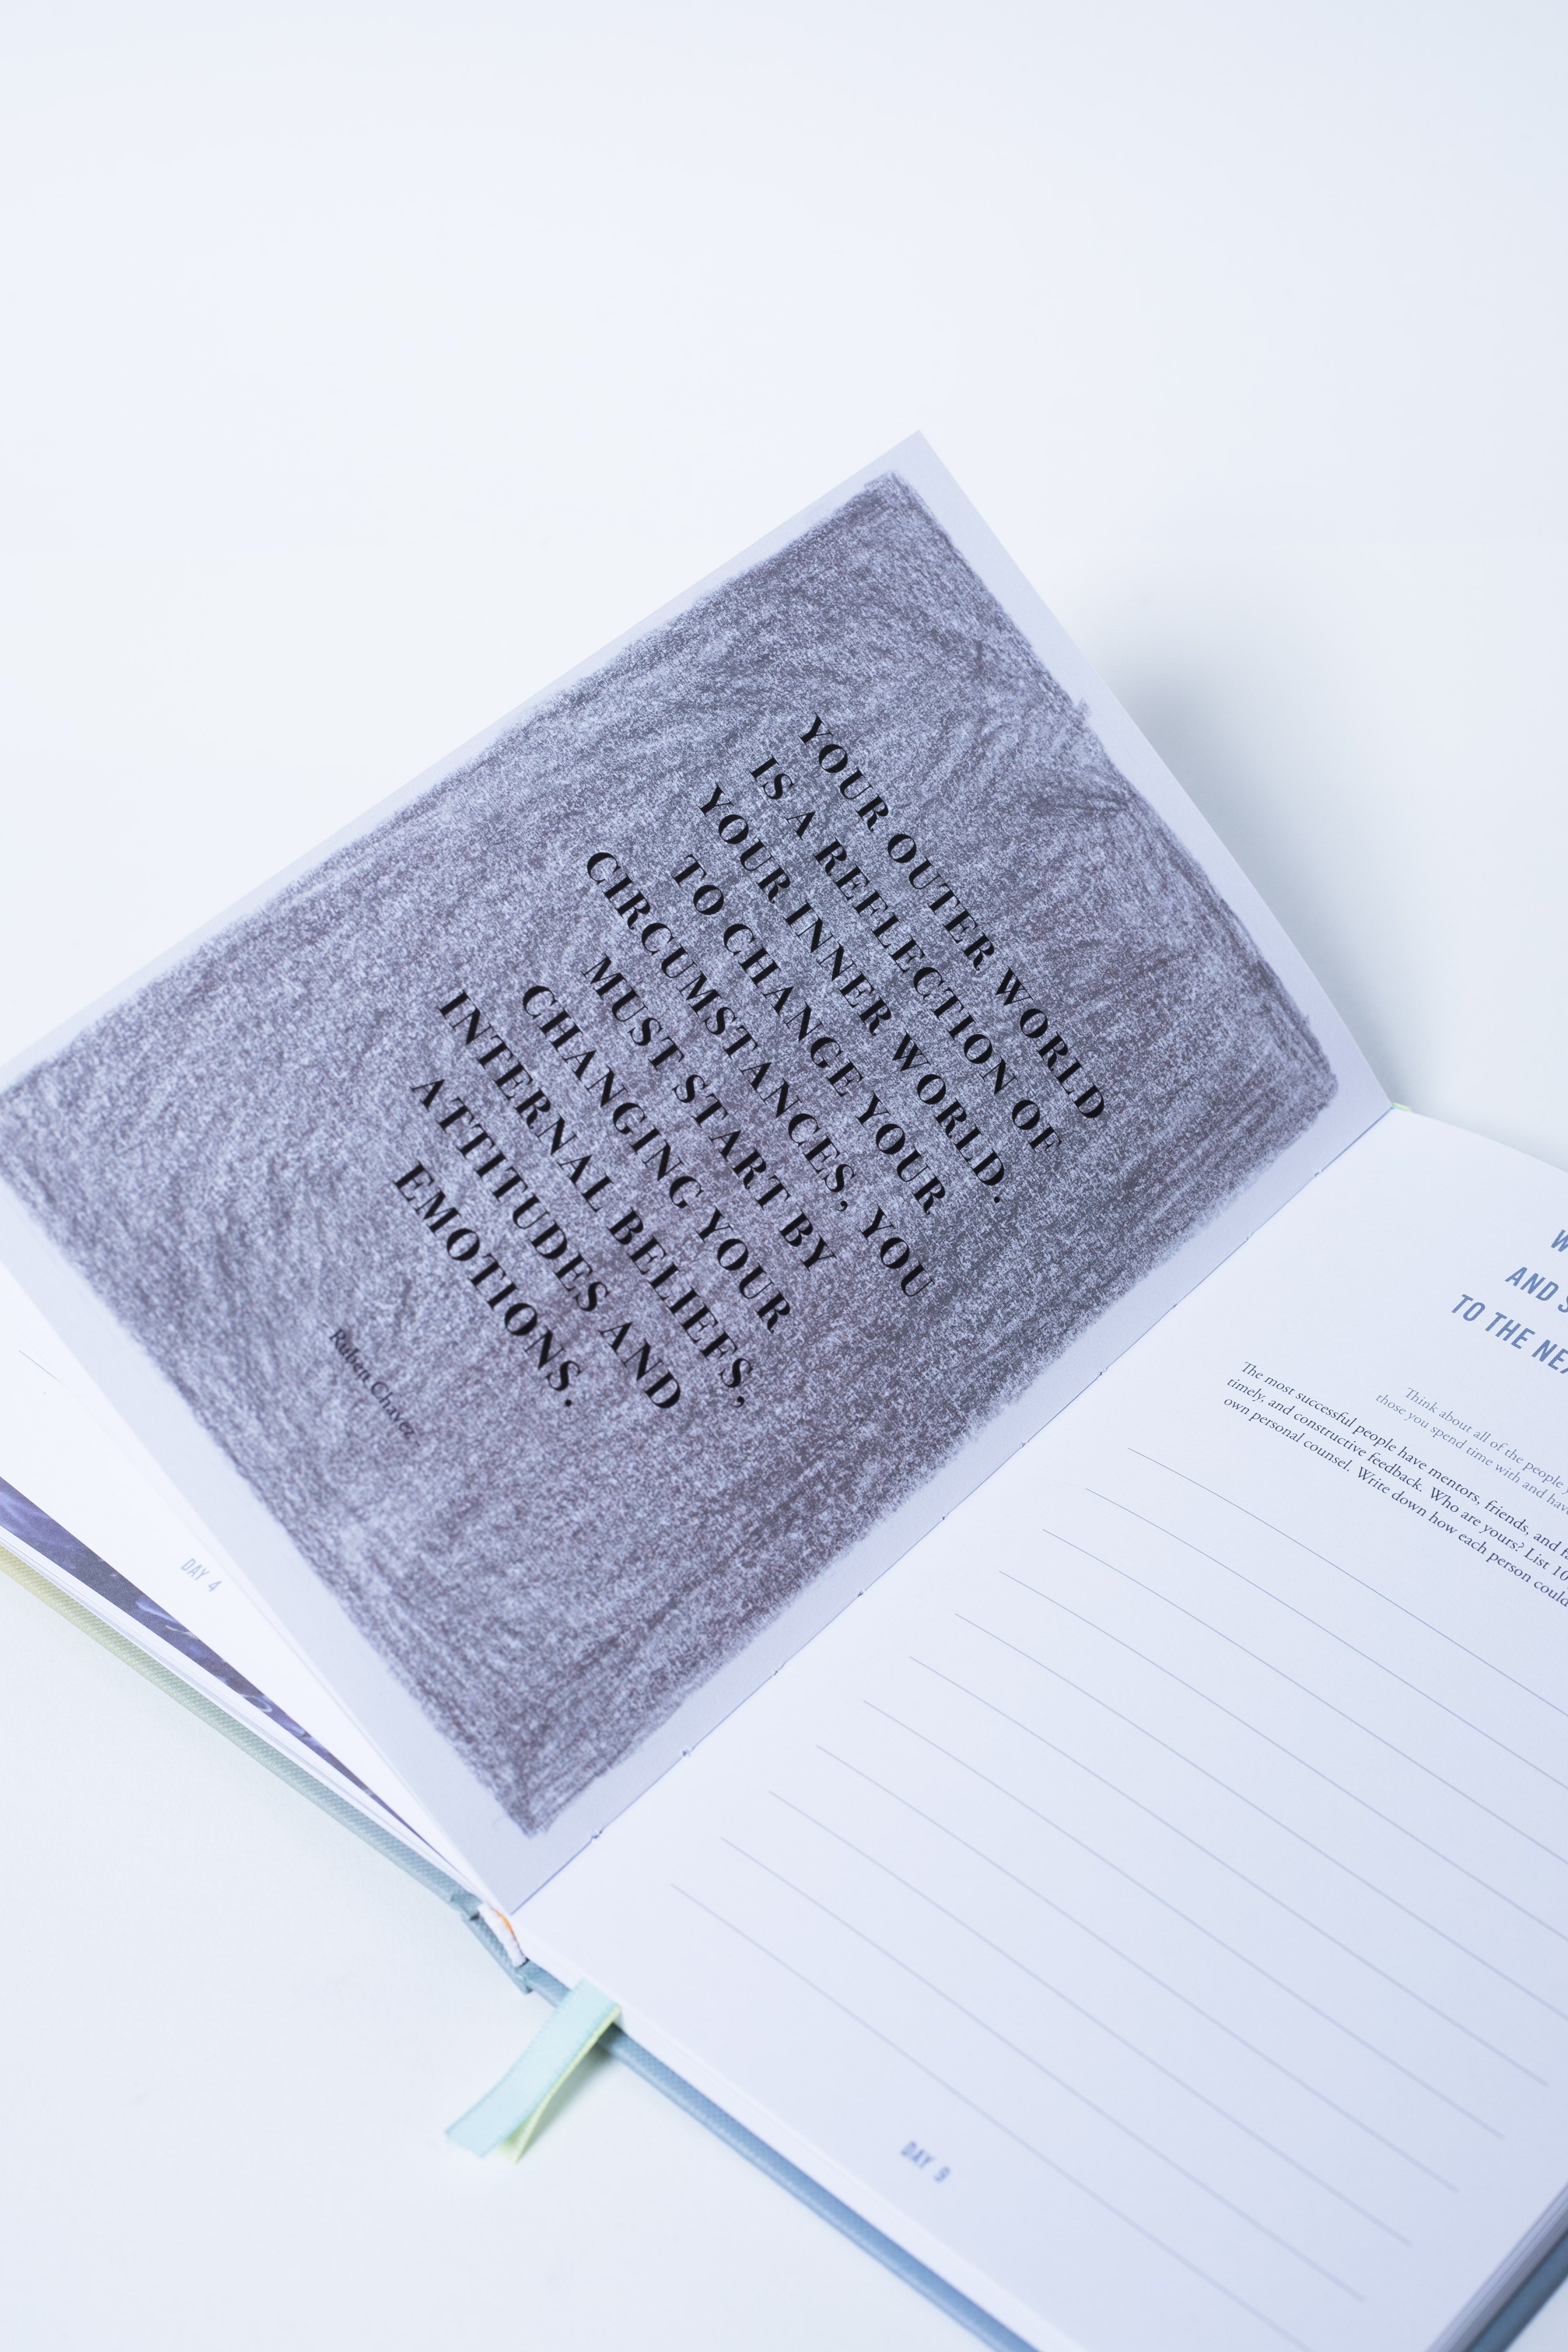 YOUR OUTER WORLD
IS A REFLECTION OF
YOUR INNER WORLD.
TO CHANGE YOUR
CIRCUMSTANCES, YOU
MUST START BY
CHANGING YOUR
INTERNAL BELIEFS,
ATTITUDES AND
EMOTIONS.
- Ruben Chavez -
DAY 4
AND
TO THE
Think about all of the people
those you spend time with and
The most successful people have mentors, friends, and
timely, and constructive feedback. Who are yours? List 10
own personal counsel. Write down how each person could
DAY 9